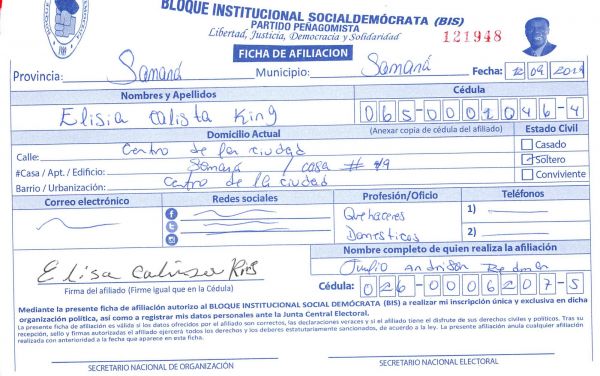 BLOQUE INSTITUCIONAL SOCIALDEMÓCRATA (BIS)
PARTIDO PEÑAGOMISTA
Libertad, Justicia, Democracia y Solidaridad
121948
FICHA DE AFILIACION
Provincia: Samaná Municipio: Samaná Fecha: 12/09/
Nombres y Apellidos Cédula
Elisia Calista King 065-0001046-4
Domicilio Actual (Anexar copia de cédula del afiliado) Estado Civil
Calle: Centro de la ciudad Casado
#Casa / Apt. / Edificio: Samaná / casa # 49 Soltero
Barrio / Urbanización: Centro de la ciudad Conviviente
Correo electrónico Redes sociales Profesión/Oficio Teléfonos
Quehaceres 1)
Domesticos 2)
Nombre completo de quien realiza la afiliación
Elisa Junio
Firma del afiliado (Firme igual que en la Cédula) Cédula: 026-0006207-5
Mediante la presente ficha de afiliación autorizo al BLOQUE INSTITUCIONAL SOCIAL DEMÓCRATA (BIS) a realizar mi inscripción única y exclusiva en dicha
organización política, así como a registrar mis datos personales ante la Junta Central Electoral.
La presente ficha de afiliación es válida si los datos ofrecidos por el afiliado son correctos, las declaraciones veraces y si el afiliado tiene el disfrute de sus derechos civiles y políticos. Tras su
recepción, sello y firmas autorizadas el afiliado ejercerá todos los derechos y los deberes estatutariamente sancionados, de acuerdo a la ley. La presente afiliación anula cualquier afiliación
realizada con anterioridad a la fecha que aparece en esta ficha.
SECRETARIO NACIONAL DE ORGANIZACIÓN SECRETARIO NACIONAL ELECTORAL